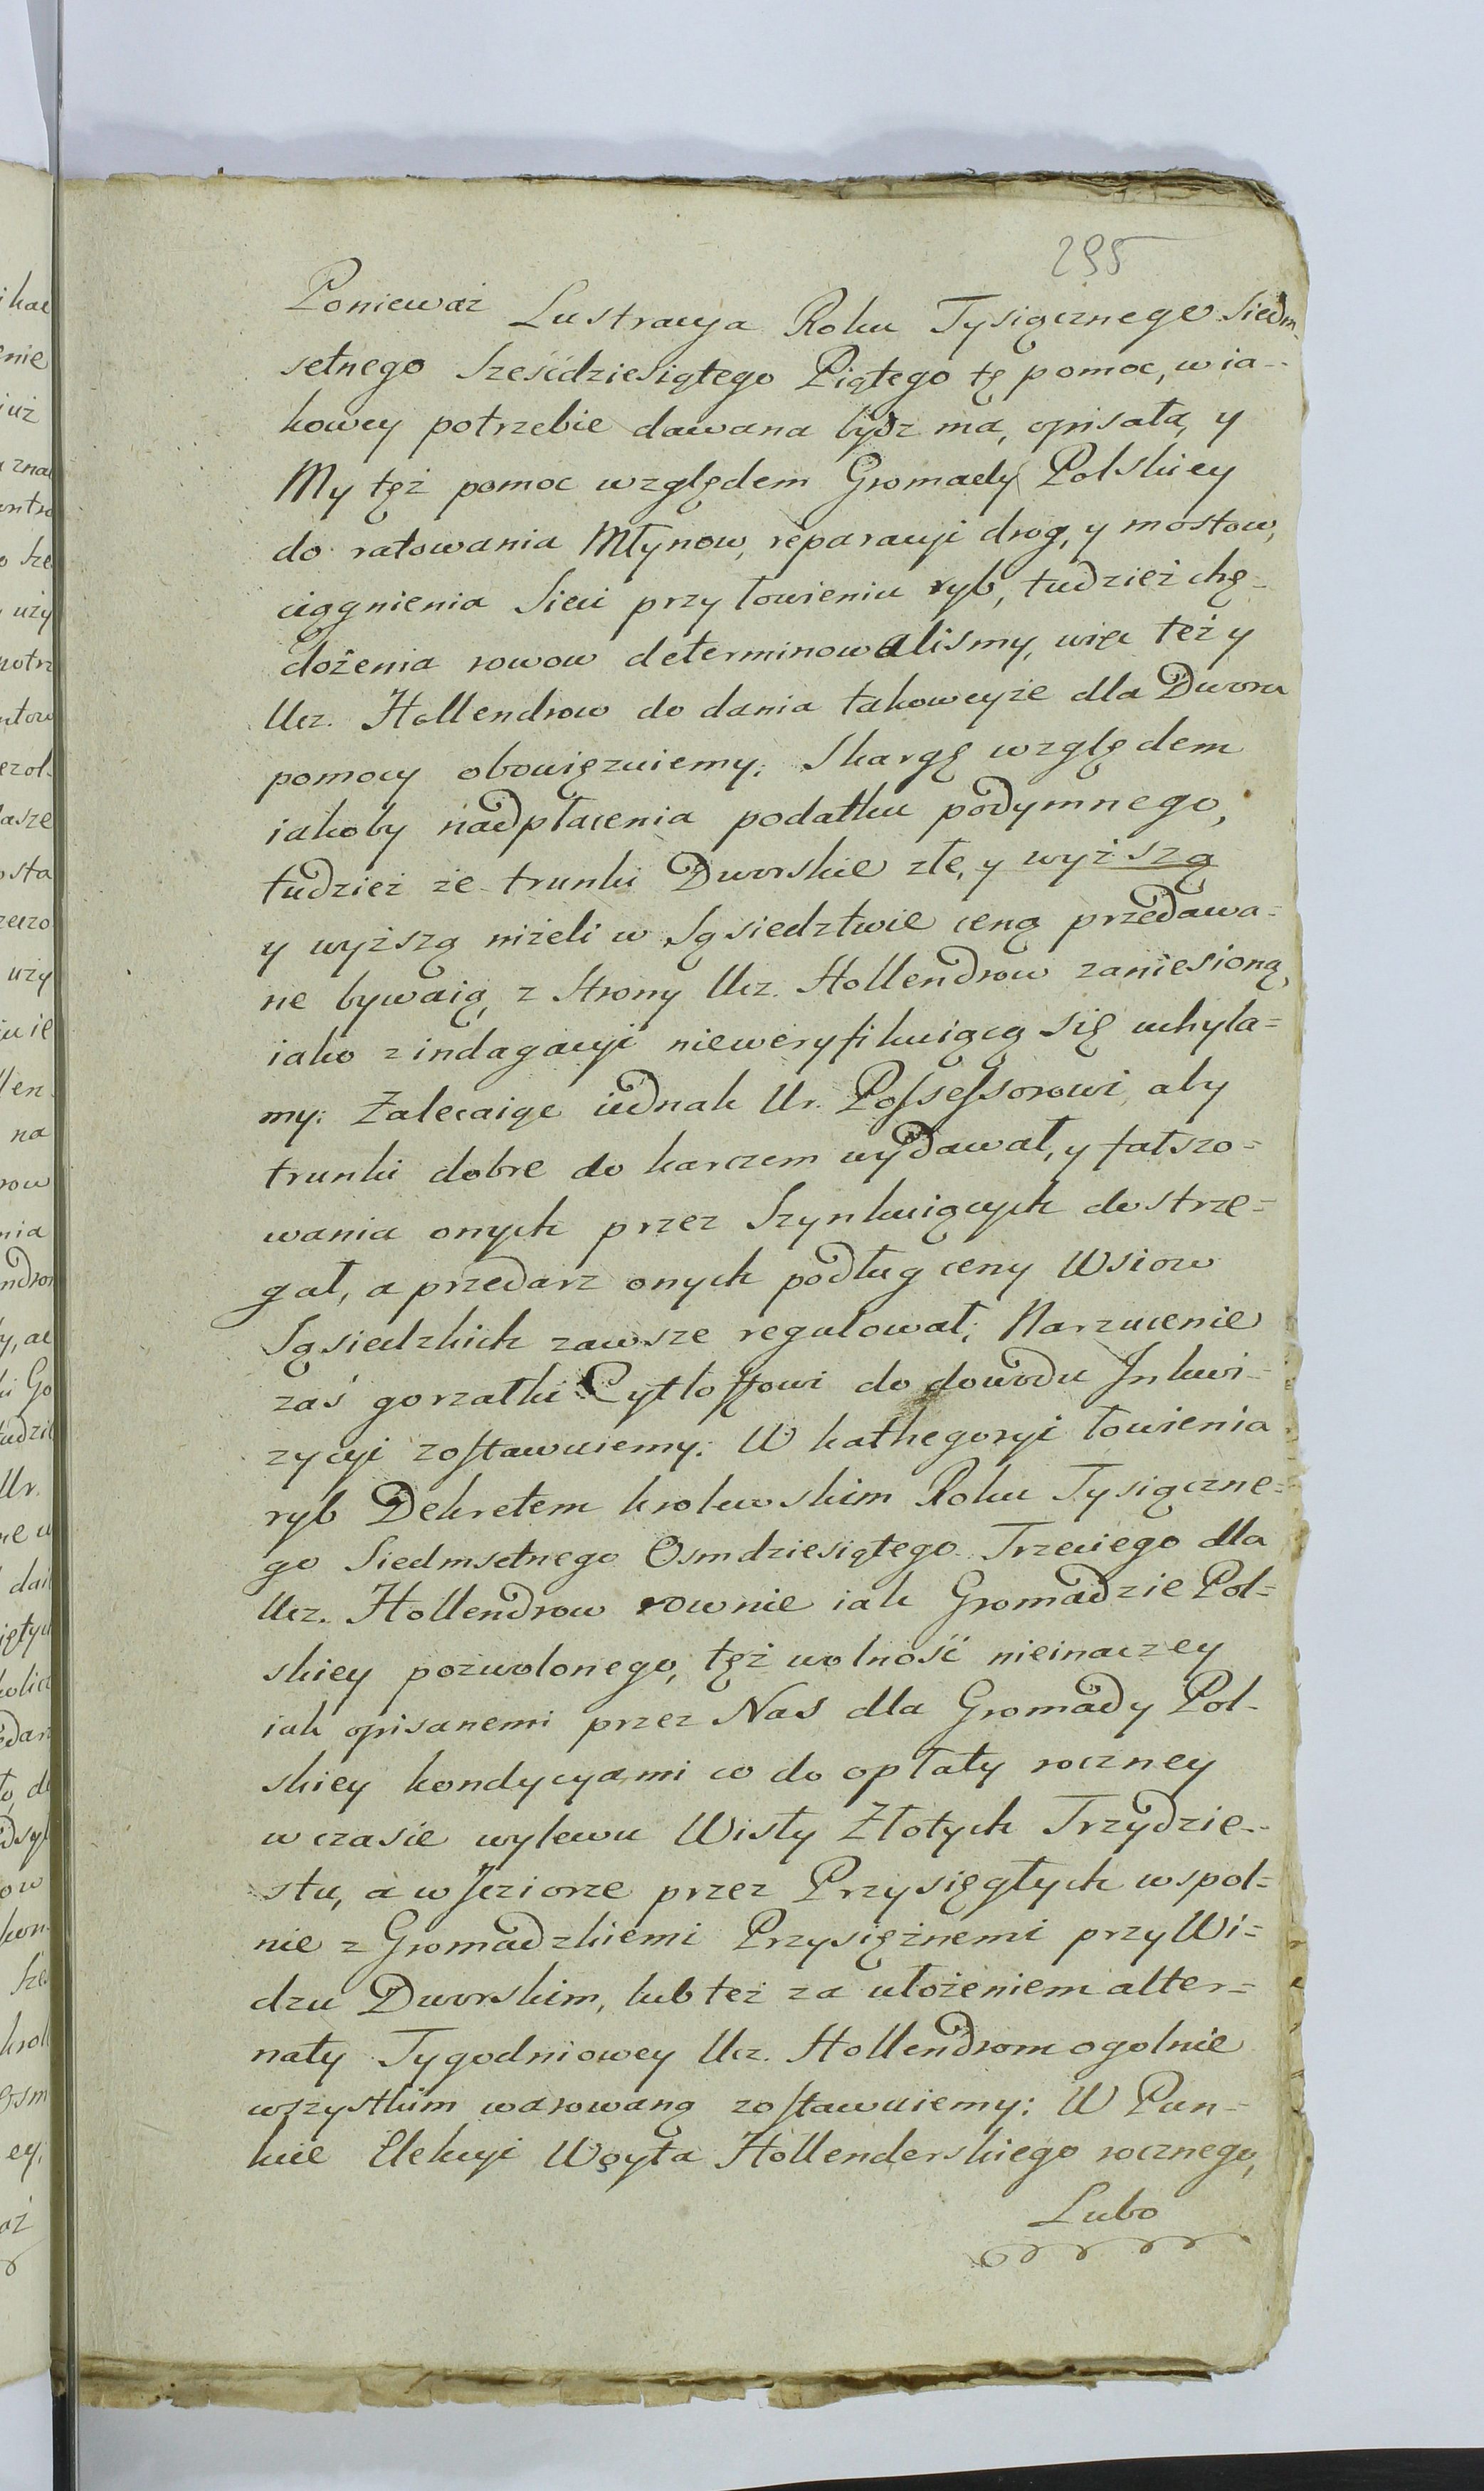 295
Ponieważ Lustracya Roku Tysiącznego Siedm
setnego Sześćdziesiątego Piątego tę pomoc, w ia-
kowey potrzebie dawana bydz ma, opisała, y
My tęż pomoc względem Gromady Polskiey
do ratowania Młynow, reparacyi drog, y mostow,
ciągnienia Sieci przy łowieniu ryb, tudzież chę-
dożenia rowow determinowalismy, więc też y
Ucz. Hollendrow do dania takoweyże dla Dworu
pomocy obowięzuiemy; Skargę względem
iakoby nadpłacenia podatku podymnego,
tudzież że trunki Dworskie złe, y wyższą
y wyższą niżeli w Sąsiedztwie ceną przedawa=
ne bywaią, z strony Ucz. Hollendrow zaniesioną,
iako z indagacyi nieweryfikuiącą się uchyla=
my: Zalecaiąc iednak Ur. Possessorowi, aby
trunki dobre do karczem wydawał, y fałszo=
wania onych przez Szynkuiących dostrze=
gał, a przedarz onych podług ceny Wsiow
Sąsiedzkich zawsze regulował; Narzucenie
zaś gorzałki Cytloffowi do dowodu Inkwi-
zycyi zostawuiemy: W kathegoryi łowienia
ryb Dekretem krolewskim Roku Tysiączne=
go Siedmsetnego Osmdziesiątego Trzeciego dla
Ucz. Hollendrow rownie iak Gromadzie Pol=
skiey pozwolonego, tęż wolność nieinaczey
iak opisanemi przez Nas dla Gromady Pol-
skiey kondycyami co do opłaty roczney
w czasie wylewu Wisły Złotych Trzydzie-
stu, a w Jeziorze przez Przysięgłych wspol=
nie z Gromadzkiemi Przysiężnemi przy Wi=
dzu Dworskim, lub też za ułożeniem alter=
naty Tygodniowey Ucz. Hollendrom ogolnie
wszystkim warowaną zostawuiemy: W Pun-
kcie Elekcyi Woyta Hollenderskiego rocznego,
Lubo